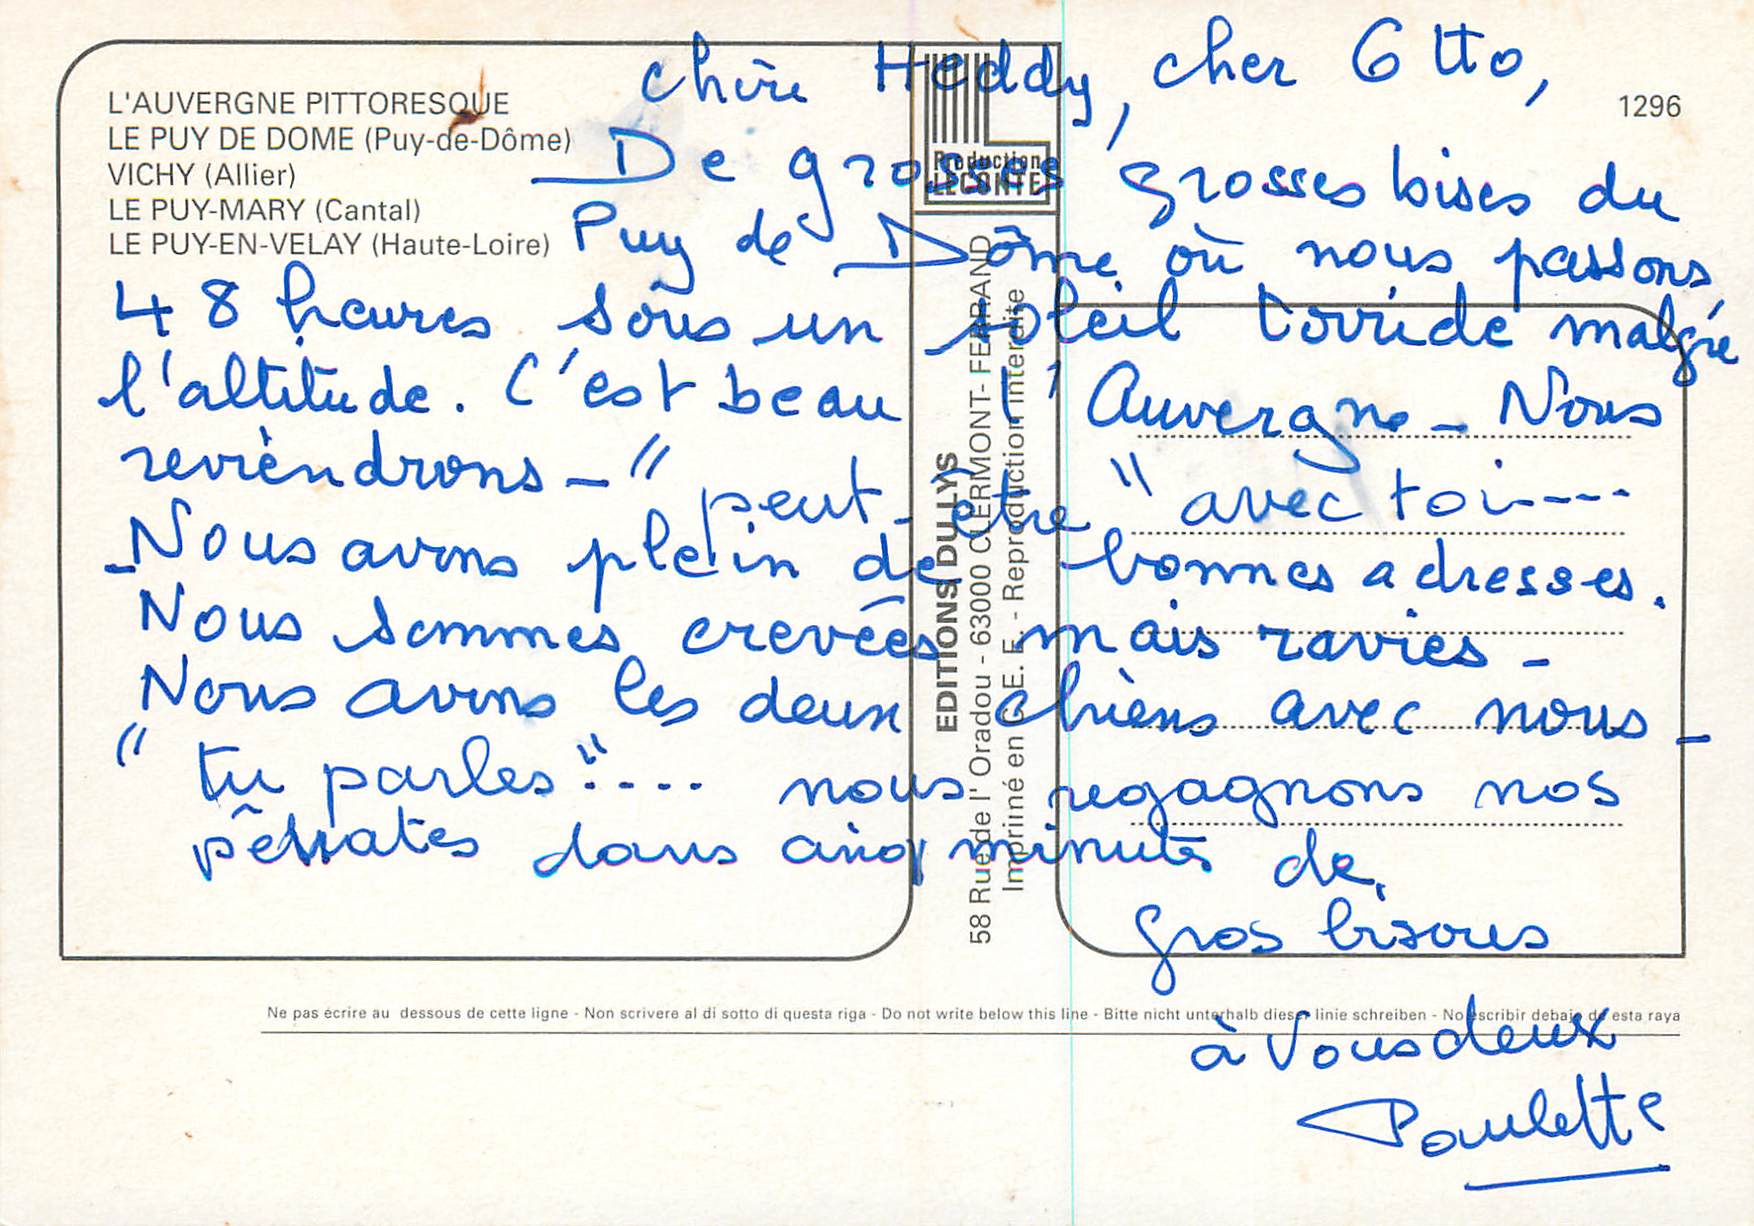 L'AUVERGNE PITTORESQUE
LE PUY DE DOME (Puy-de-Dôme)
VICHY (Allier)
LE PUY-MARY (Cantal)
LE PUY-EN-VELAY (Haute-Loire)
1296
Production
LECONTE
EDITIONS DU LYS
58 Rue de l'Oradou - 63000 CLERMONT-FERRAND
Imprimé en C. E. E. - Reproduction interdite
Chère Heddy, cher Otto,
De grosses, grosses bises du
Puy de Dôme où nous passons
48 heures sous un soleil torride malgré
l'altitude. C'est beau l'Auvergne - Nous
reviendrons - "peut-être" avec toi ----
- Nous avons plein de bonnes adresses.
Nous sommes crevées mais ravies -
Nous avons les deux chiens avec nous -
"tu parles".... nous regagnons nos
pénates dans cinq minutes de
gros bisous
à vous deux
Paulette
Ne pas écrire au dessous de cette ligne - Non scrivere al di sotto di questa riga - Do not write below this line - Bitte nicht unterhalb dieser linie schreiben - No escribir debajo de esta raya